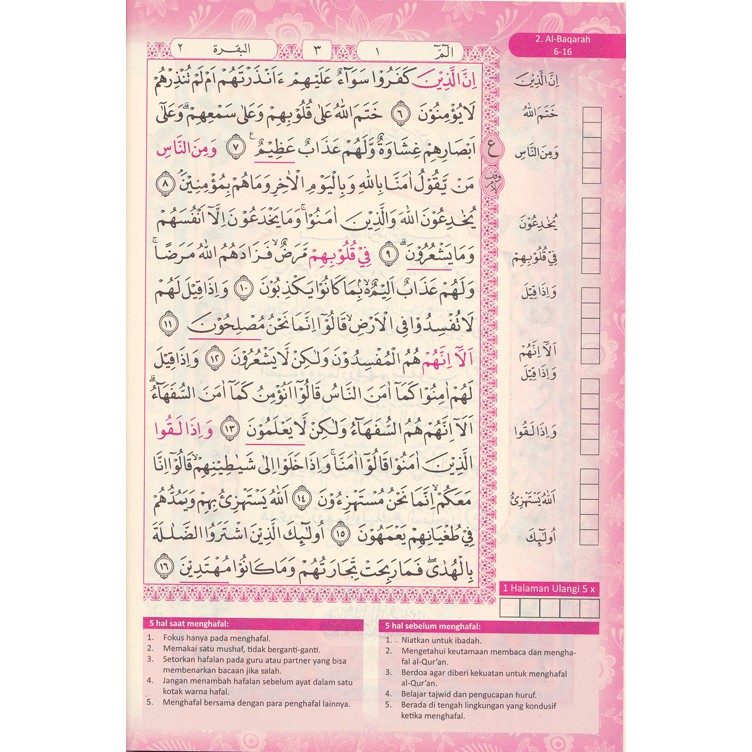 الۤمّۤ ١
٣
البقرة ٢
2. Al-Baqarah
6-16
اِنَّ الَّذِيْنَ كَفَرُوْا سَوَاۤءٌ عَلَيْهِمْ ءَاَنْذَرْتَهُمْ اَمْ لَمْ تُنْذِرْهُمْ
لَا يُؤْمِنُوْنَ ٦ خَتَمَ اللّٰهُ عَلٰى قُلُوْبِهِمْ وَعَلٰى سَمْعِهِمْ ۗ وَعَلٰٓى
اَبْصَارِهِمْ غِشَاوَةٌ وَّلَهُمْ عَذَابٌ عَظِيْمٌ ࣖ ٧ وَمِنَ النَّاسِ
مَنْ يَّقُوْلُ اٰمَنَّا بِاللّٰهِ وَبِالْيَوْمِ الْاٰخِرِ وَمَا هُمْ بِمُؤْمِنِيْنَ ۘ ٨
يُخٰدِعُوْنَ اللّٰهَ وَالَّذِيْنَ اٰمَنُوْا ۚ وَمَا يَخْدَعُوْنَ اِلَّآ اَنْفُسَهُمْ
وَمَا يَشْعُرُوْنَ ۗ ٩ فِيْ قُلُوْبِهِمْ مَّرَضٌۙ فَزَادَهُمُ اللّٰهُ مَرَضًاۚ
وَلَهُمْ عَذَابٌ اَلِيْمٌ ۢ ەۙ بِمَا كَانُوْا يَكْذِبُوْنَ ١٠ وَاِذَا قِيْلَ لَهُمْ
لَا تُفْسِدُوْا فِى الْاَرْضِۙ قَالُوْٓا اِنَّمَا نَحْنُ مُصْلِحُوْنَ ١١
اَلَآ اِنَّهُمْ هُمُ الْمُفْسِدُوْنَ وَلٰكِنْ لَّا يَشْعُرُوْنَ ١٢ وَاِذَا قِيْلَ
لَهُمْ اٰمِنُوْا كَمَآ اٰمَنَ النَّاسُ قَالُوْٓا اَنُؤْمِنُ كَمَآ اٰمَنَ السُّفَهَاۤءُ ۗ
اَلَآ اِنَّهُمْ هُمُ السُّفَهَاۤءُ وَلٰكِنْ لَّا يَعْلَمُوْنَ ١٣ وَاِذَا لَقُوا
الَّذِيْنَ اٰمَنُوْا قَالُوْٓا اٰمَنَّا ۚ وَاِذَا خَلَوْا اِلٰى شَيٰطِيْنِهِمْ ۙ قَالُوْٓا اِنَّا
مَعَكُمْ ۙ اِنَّمَا نَحْنُ مُسْتَهْزِءُوْنَ ١٤ اَللّٰهُ يَسْتَهْزِئُ بِهِمْ وَيَمُدُّهُمْ
فِيْ طُغْيَانِهِمْ يَعْمَهُوْنَ ١٥ اُولٰۤىِٕكَ الَّذِيْنَ اشْتَرَوُا الضَّلٰلَةَ
بِالْهُدٰىۖ فَمَا رَبِحَتْ تِّجَارَتُهُمْ وَمَا كَانُوْا مُهْتَدِيْنَ ١٦
ع
اِنَّ الَّذِيْنَ
خَتَمَ اللّٰهُ
وَمِنَ النَّاسِ
يُخٰدِعُوْنَ
فِيْ قُلُوْبِهِمْ
وَاِذَا قِيْلَ
اَلَآ اِنَّهُمْ
وَاِذَا قِيْلَ
وَاِذَا لَقُوا
اَللّٰهُ يَسْتَهْزِئُ
اُولٰۤىِٕكَ
1 Halaman Ulangi 5 x
5 hal saat menghafal:
1. Fokus hanya pada menghafal.
2. Memakai satu mushaf, tidak berganti-ganti.
3. Setorkan hafalan pada guru atau partner yang bisa
membenarkan bacaan jika salah.
4. Jangan menambah hafalan sebelum ayat dalam satu
kotak warna hafal.
5. Menghafal bersama dengan para penghafal lainnya.
5 hal sebelum menghafal:
1. Niatkan untuk ibadah.
2. Mengetahui keutamaan membaca dan mengha-
fal al-Qur'an.
3. Berdoa agar diberi kekuatan untuk menghafal
al-Qur'an.
4. Belajar tajwid dan pengucapan huruf.
5. Berada di tengah lingkungan yang kondusif
ketika menghafal.